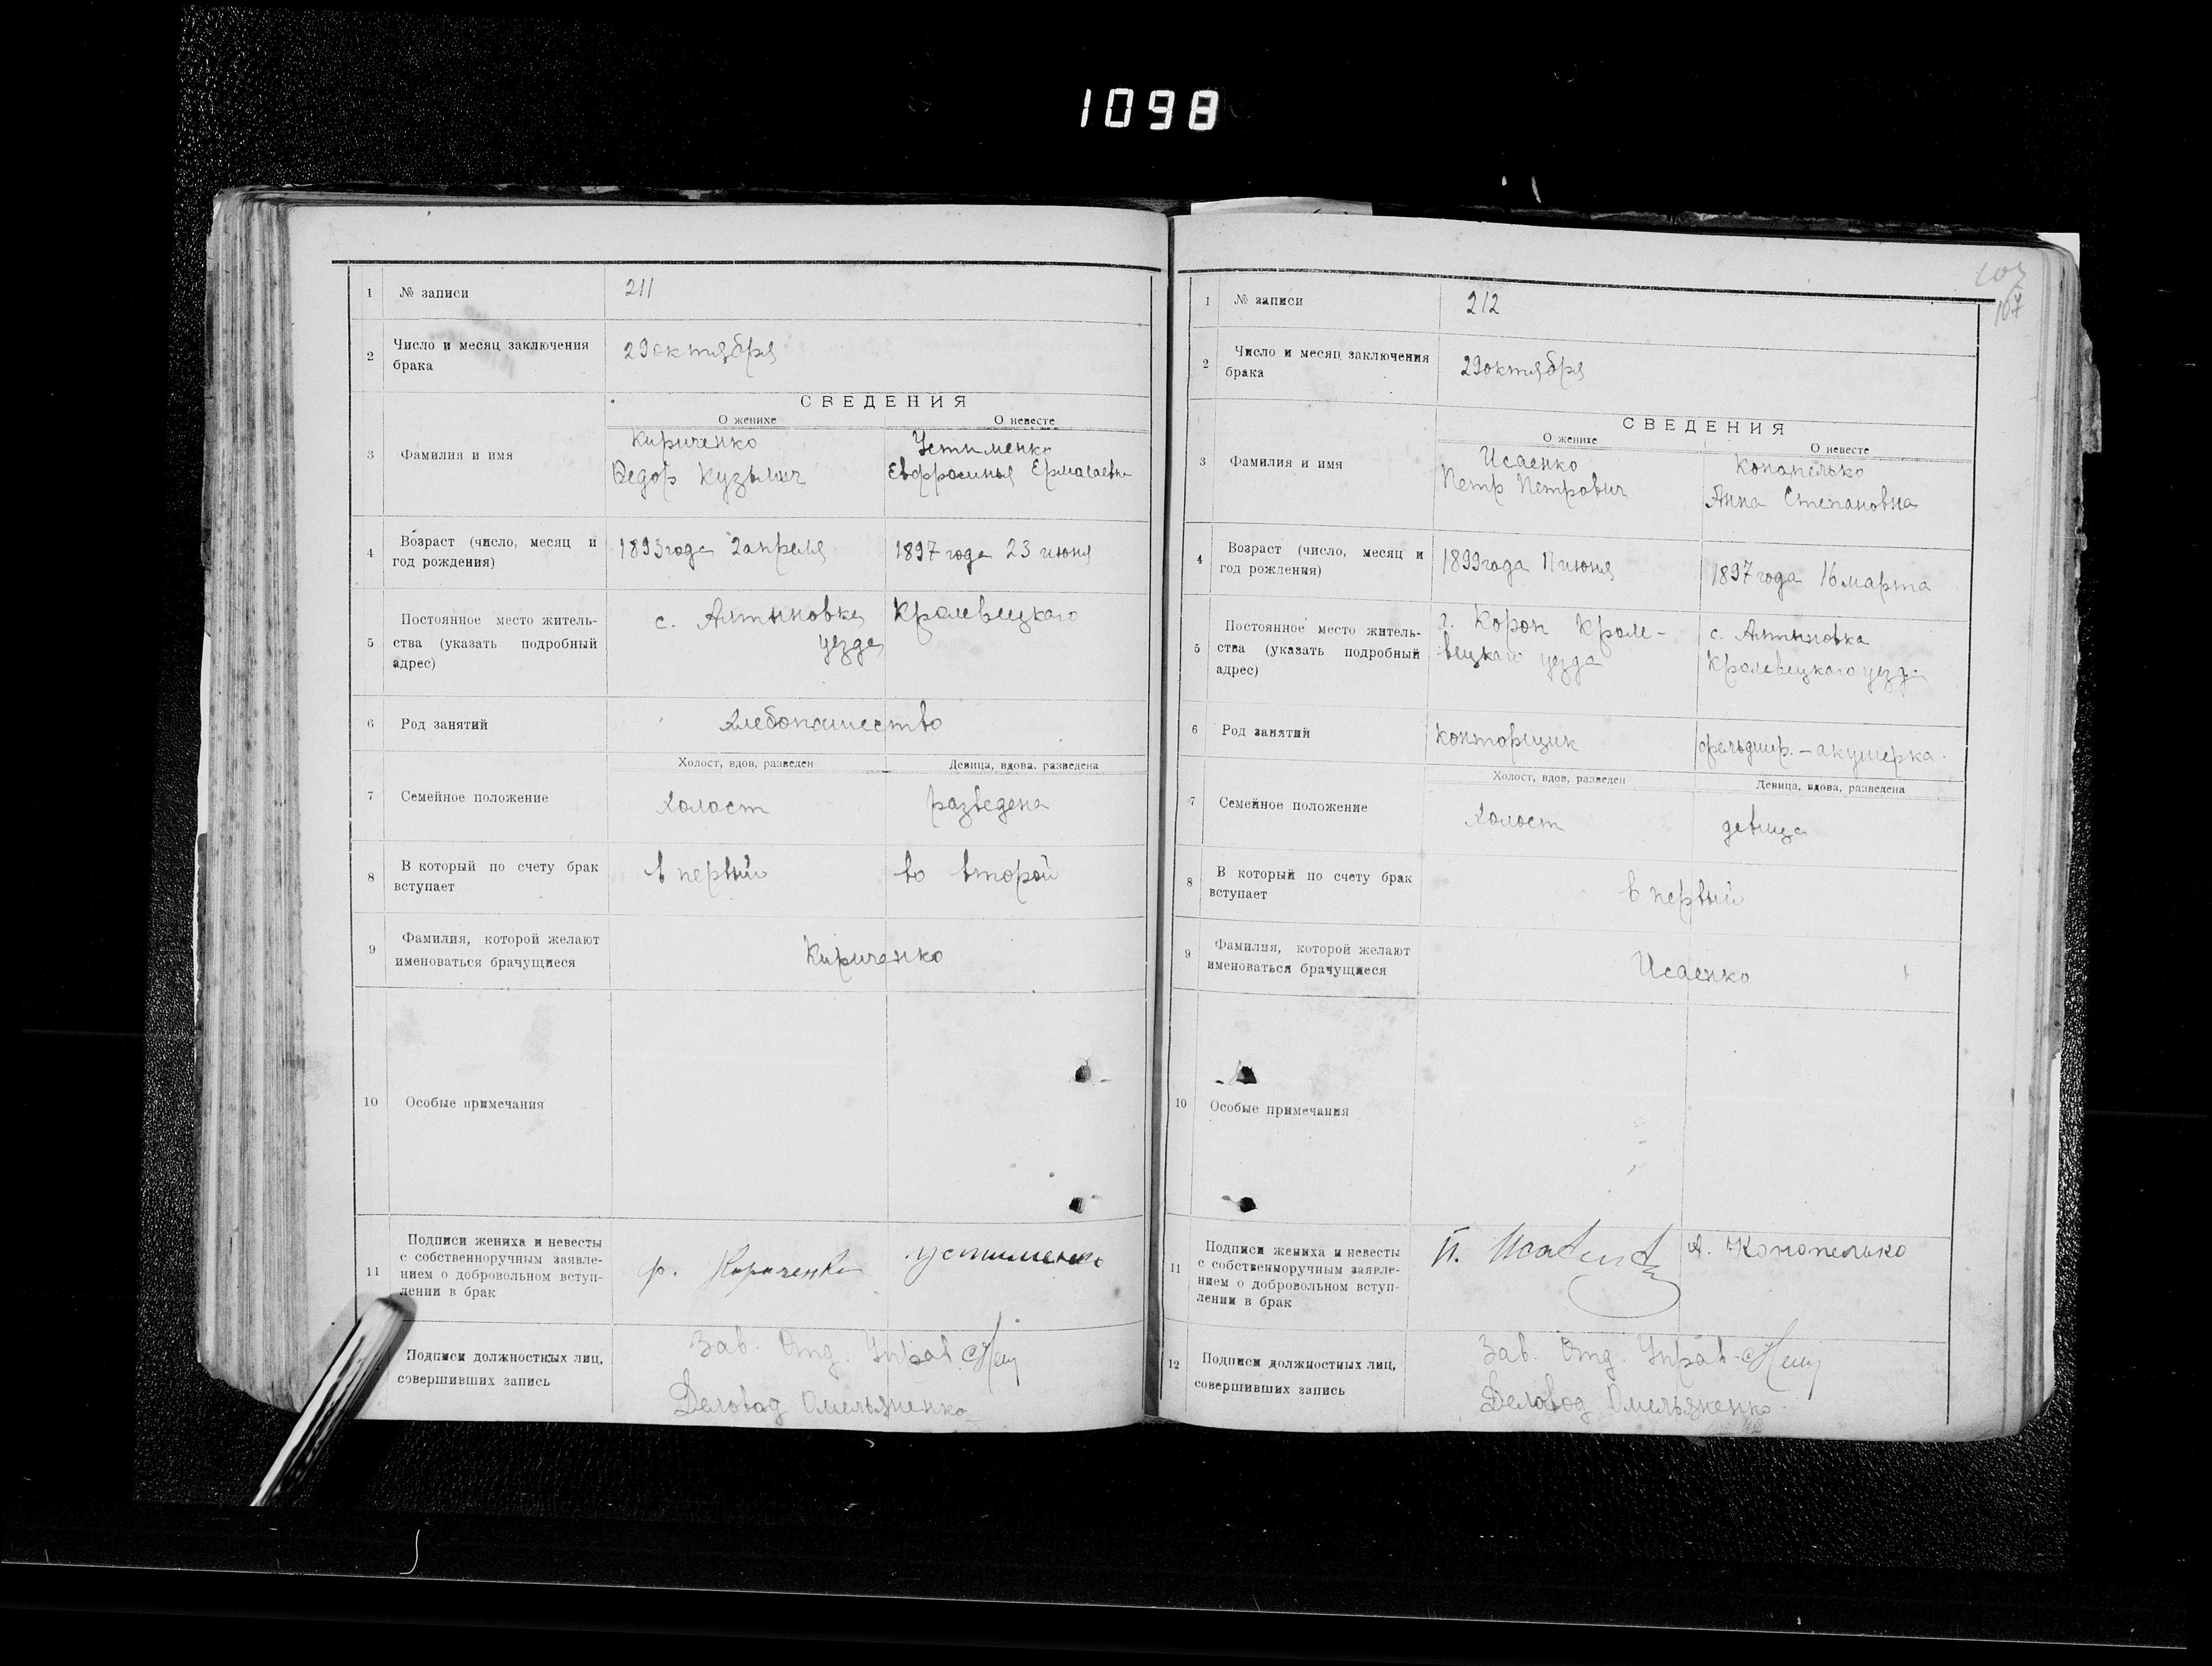 1098
1 № записи 211
2 Число и месяц заключения брака
29 октября
СВЕДЕНИЯ
О женихе О невесте
3 Фамилия и имя
Кириченко
Федор Кузьмич
Устименко
Евфросинья
4 Возраст (число, месяц и год рождения)
1893 года 2 апреля
1897 года 23 июня
5 Постоянное место житель-
ства (указать подробный
адрес)
с. Алтыновка Кролевецкаго
уезда
6 Род занятий
хлебопашество
Холост, вдов, разведен Девица, вдова. разведена
7 Семейное положение
холост
разведена
8 В который по счету брак
вступает
в первый
во второй
9 Фамилия, которой желают
именоваться брачущиеся
Кириченко
10 Особые примечания
11 Подписи жениха и невесты
с собственноручным заявле-
нием о добровольном вступ-
лении в брак
ф. Кириченко
устименко
Подписи должностных лиц,
совершивших запись
Зав. Отд. Управ.
Деловод Омельяненко
107
1 № записи 212
2 Число и месяц заключения
брака
29 октября
СВЕДЕНИЯ
О женихе О невесте
3 Фамилия и имя
Исаенко
Петр Петрович
Конапелько
Анна Степановна
4 Возраст (число, месяц и
год рождения)
1899 года 11 июня
1897 года 16 марта
5 Постоянное место житель-
ства (указать подробный
адрес)
г. Короп Кроле-
вецкаго уезда
с. Алтыновка
Кролевецкаго уезда
6 Род занятий
конторщик
фельдшер. – акушерка.
Холост, вдов, разведен Девица, вдова, разведена
7 Семейное положение
холост
девица
8 В который по счету брак
вступает
в первый
9 Фамилия, которой желают
именоваться брачущиеся
Исаенко
10 Особые примечания
11 Подписи жениха и невесты
с собственноручным заявле-
нием о добровольном вступ-
лении в брак
П. Исаенко
А. Конопелько
12 Подписи должностных лиц,
совершивших запись
Зав. Отд. Управ.
Деловод Омельяненко